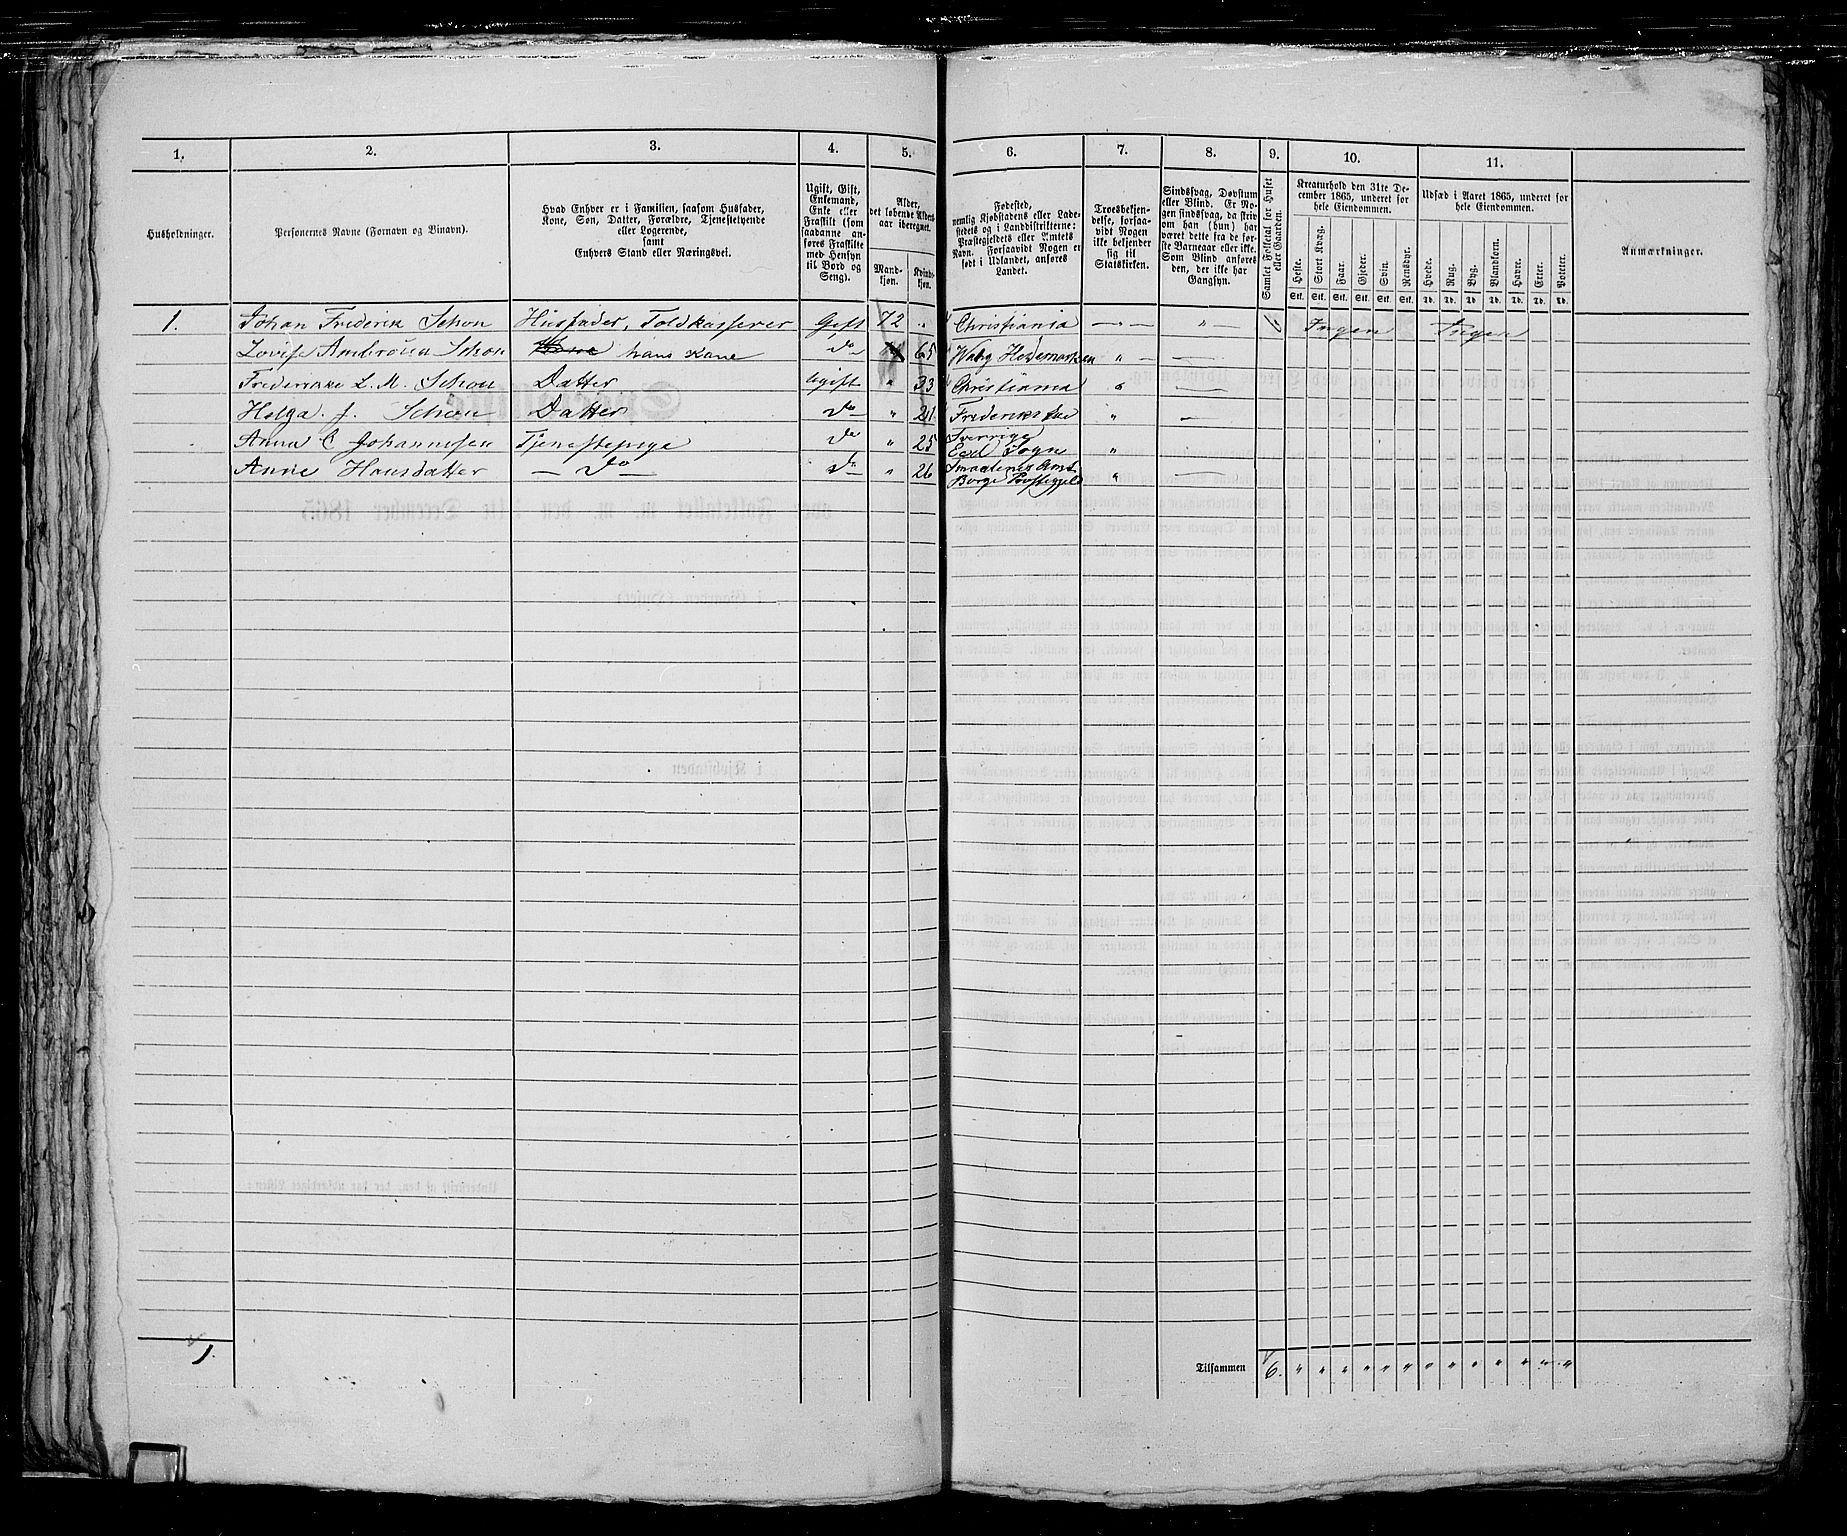 1.
2.
3.
4.
5.
6.
7.
8.
9.
10.
11.
Husholdninger.
Personernes Navne (Fornavn og Binavn).
Hvad Enhver er i Familien, saasom Husfader,
Kone, Søn, Datter, Forældre, Tjenestetyende
eller Logerende,
samt
Enhvers Stand eller Næringsvei.
Ugift, Gift,
Enkemand,
Enke eller
Fraskilt (som
saadanne an-
føres Fraskilte
med Hensyn
til Bord og
Seng).
Alder,
det løbende Alders-
aar iberegnet.
Mand-
kjøn.
Kvinde-
kjøn.
Fødested,
nemlig Kjøbstadens eller Lade-
stedets og i Landdistrikterne:
Præstegjeldets eller Amtets
Navn. Forsaavidt Nogen er
født i Udlandet, anføres
Landet.
Troesbekjen-
delse, forsaa-
vidt Nogen
ikke bekjender
sig til
Statskirken.
Sindssvag, Døvstum
eller Blind. Er No-
gen sindssvag, da skriv
om han (hun) har
været dette fra de før-
ste Barneaar eller ikke.
Som Blind anføres
den, der ikke har
Gangsyn.
Samlet Folketal for Huset
eller Gaarden.
Kreaturhold den 31te De-
cember 1865, underet for
hele Eiendommen.
Heste.
Stort Kvæg.
Faar.
Gjeder.
Svin.
Rensdyr.
Stk. Stk. Stk. Stk. Stk. Stk.
Udsæd i Aaret 1865, underet for
hele Eiendommen.
Hvede.
Rug.
Byg.
Blandkorn.
Havre.
Erter.
Poteter.
Td. Td. Td. Td. Td. Td. Td.
Anmærkninger.
1. Johan Frederik Schøn Husfader, Toldkasserer Gift 72 " Christiania — " — — " — 6 Ingen Ingen
Lovise Ambrosia Schøn hans Kone do 65 Hedemarken "
Frederikke L. M. Schøn Datter Ugift " 33 Christiania
Helga J. Schøn Datter do " 21 "
Anna C Johannesen Tjenestepige do " 25 Sverrige
Sogn "
Anne Hansdatter — do — do " 26 Smaalenes Amt
Borge Præstegjeld "
1.
Tilsammen 6. " " " " " " " " " " " " "